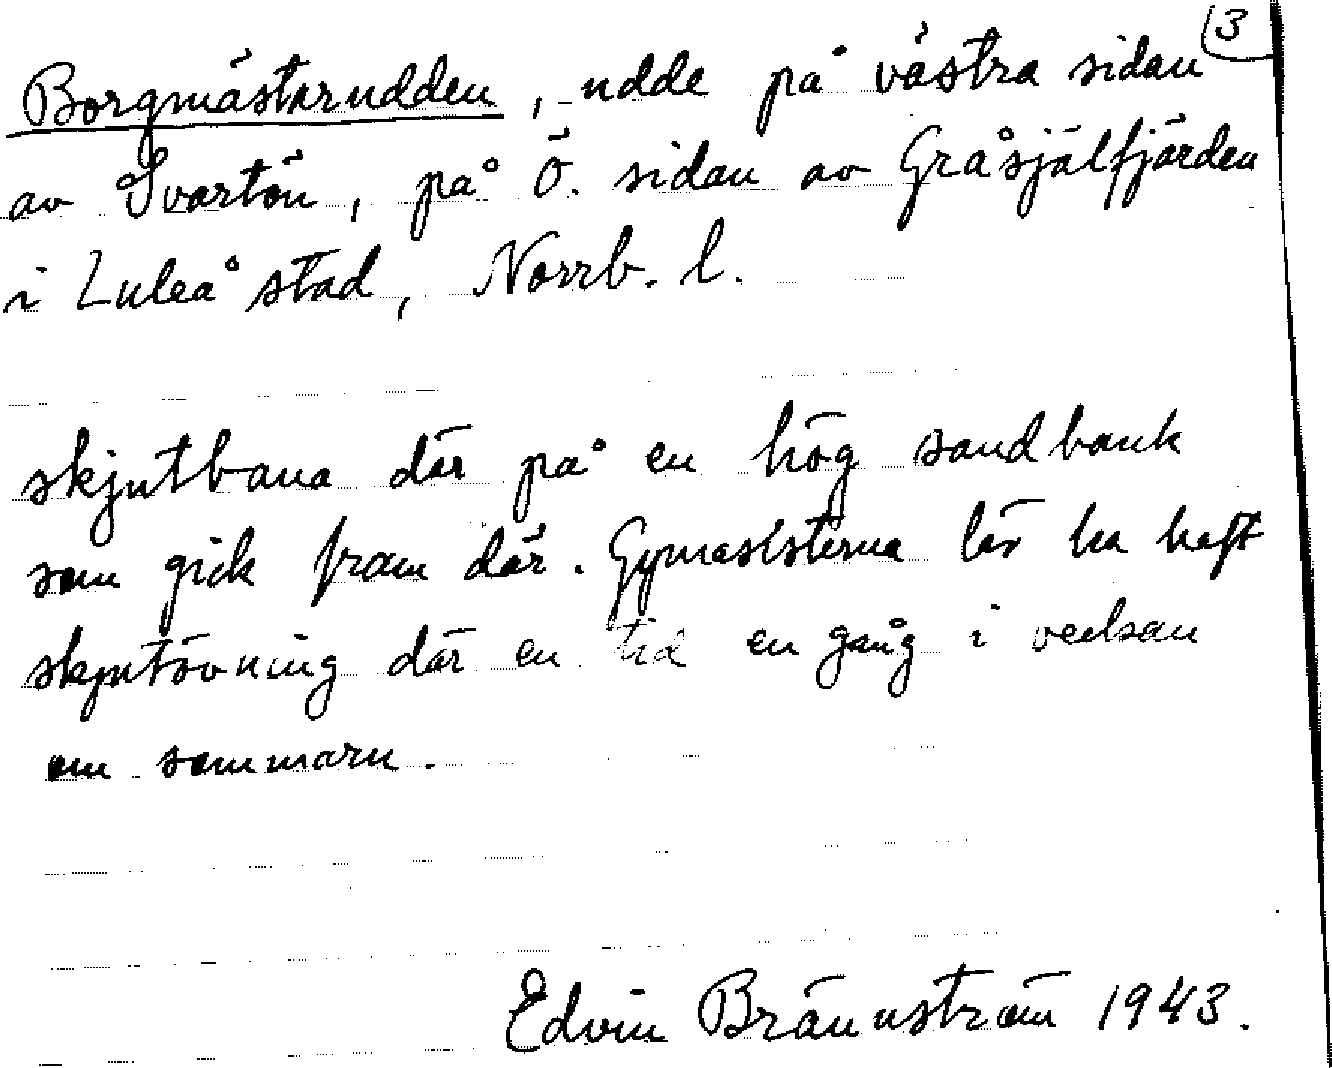 3
Borgmästarudden, udde på västra sidan
av Svartön, på Ö. sidan av Gråsjälfjärden
i Luleå stad, Norrb. l.
skjutbana där på en hög sandbank
som gick fram där. Gymnasisterna lär ha haft
skjutövning där en tid en gång i veckan
om sommarn.
Edvin Brännström 1943.